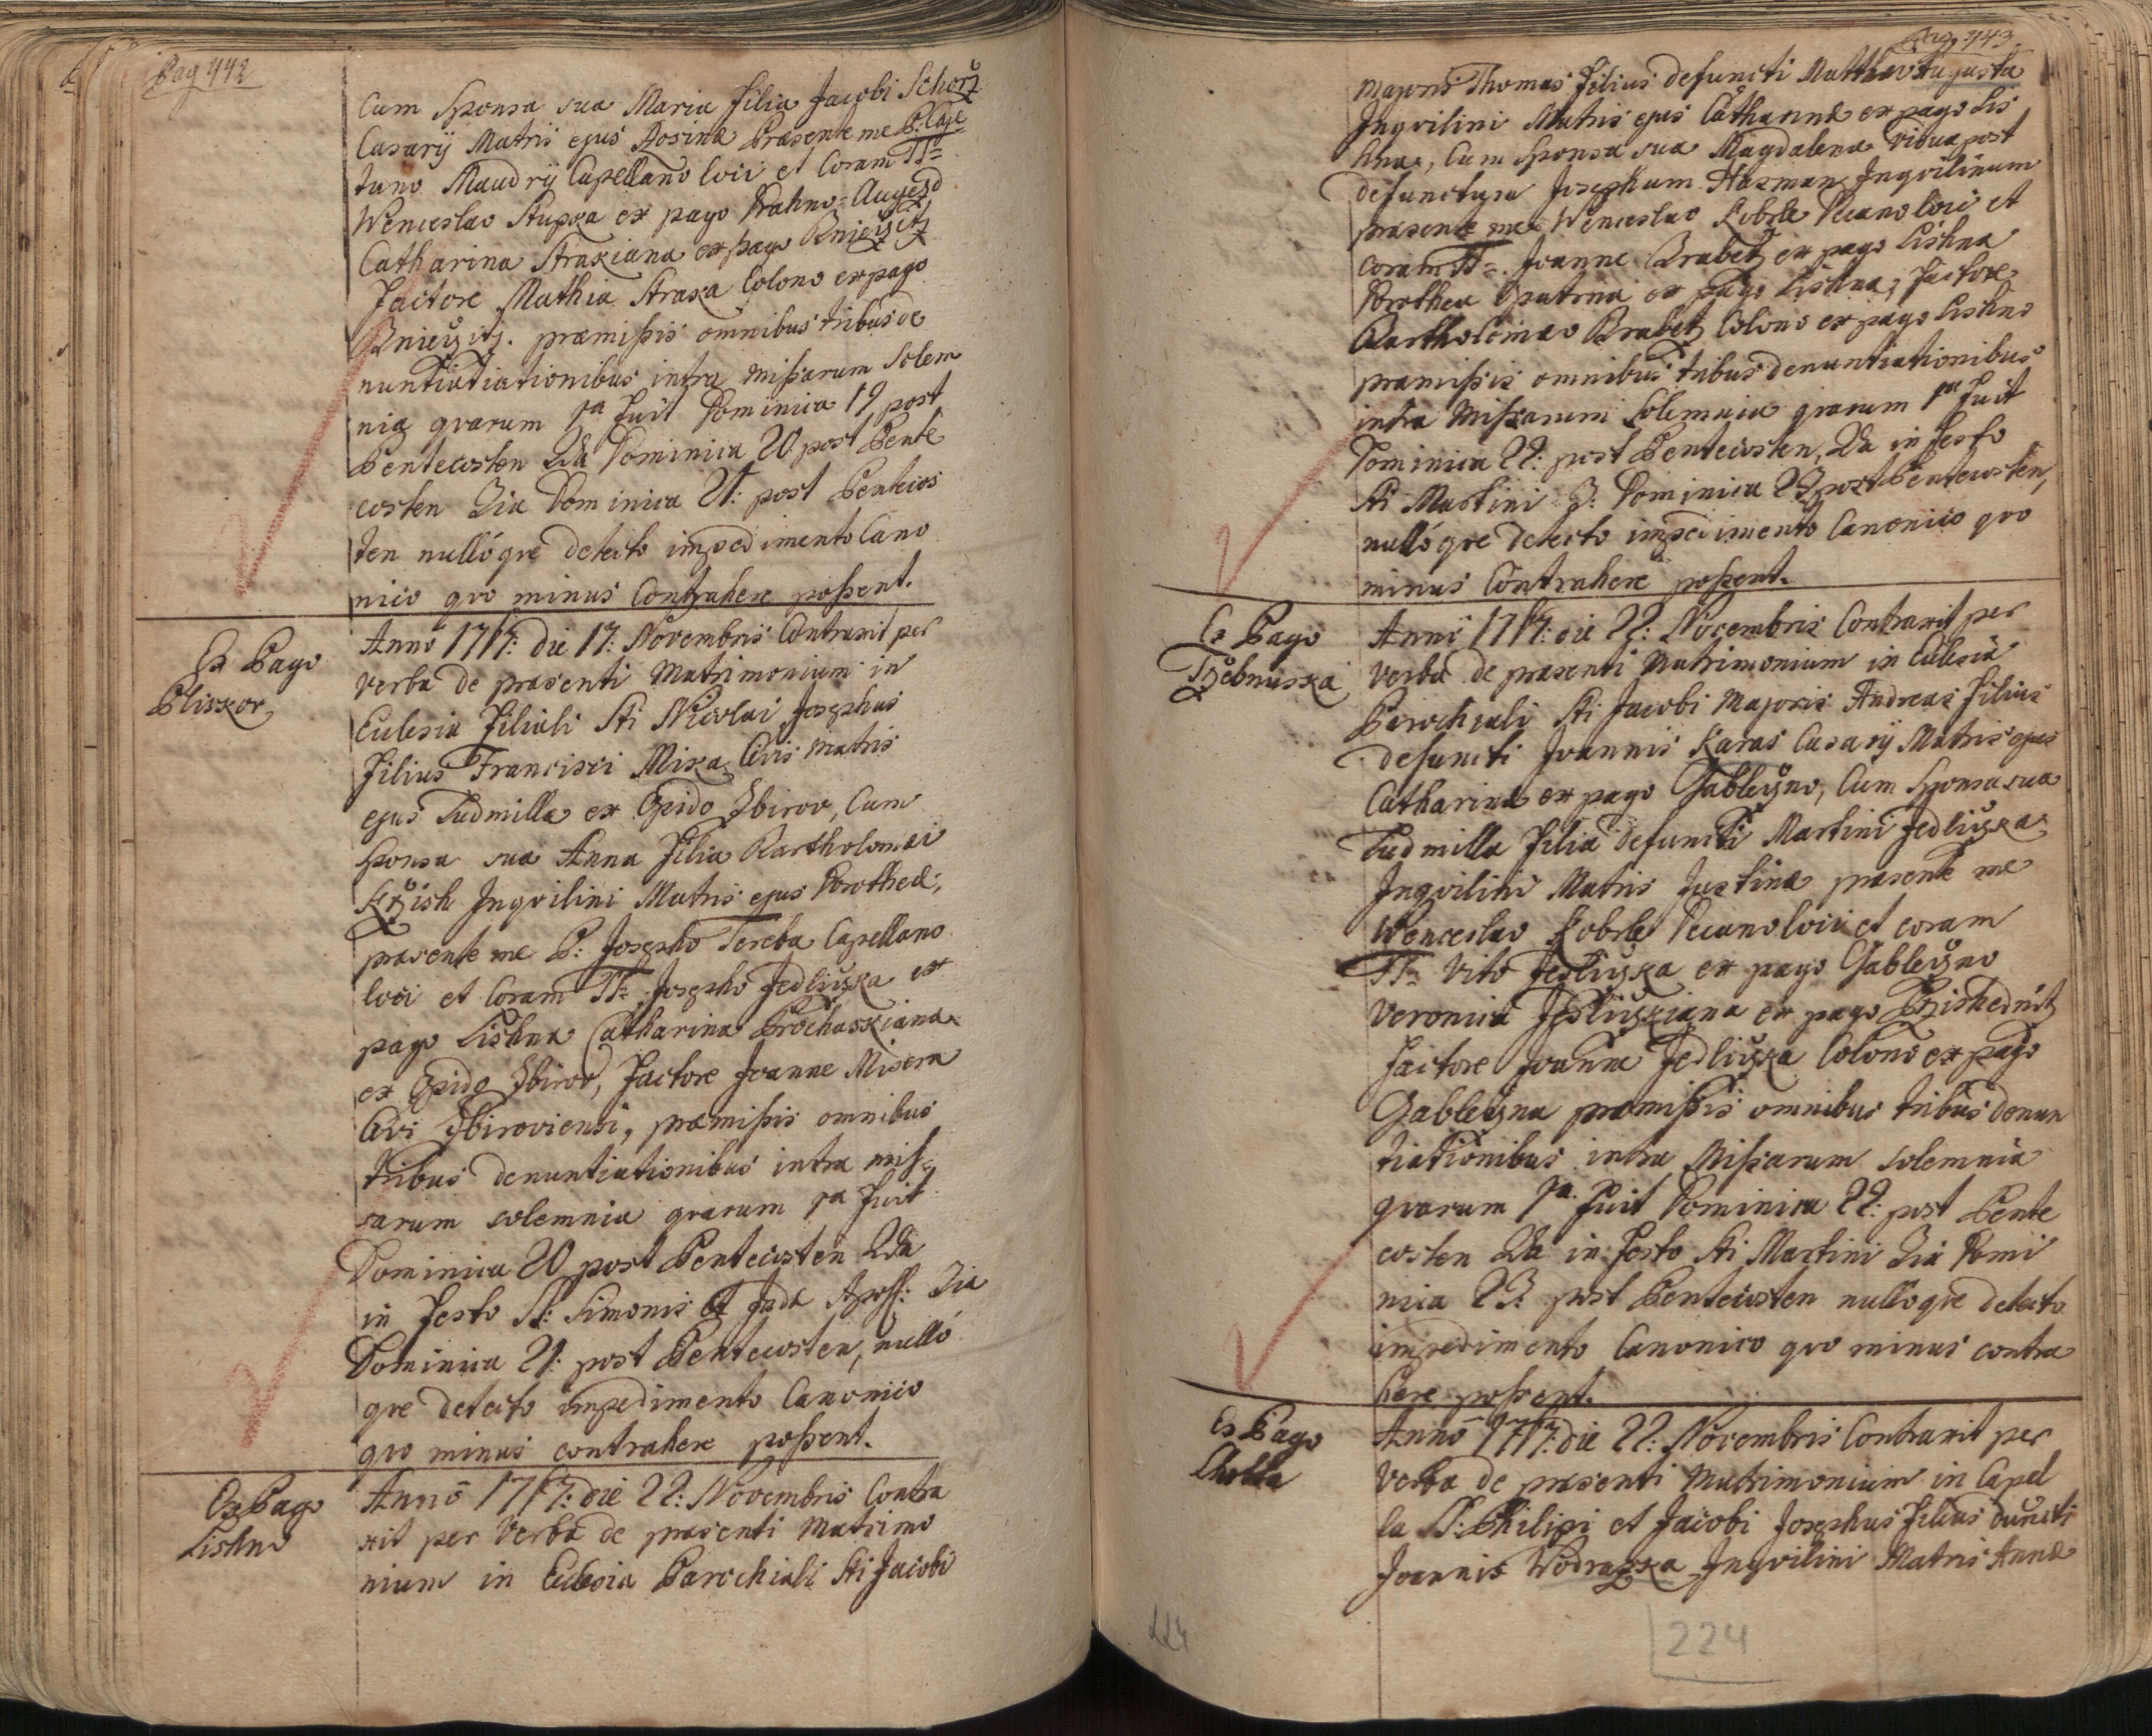 Pag 442
Cum Sponsa sua Maria Filia Jacobi Schorž
Casarij Matris ejus Rosinæ Præsente me P. Caje=
tano Maudrij Capellano loci et Coram TT=
Wenceslao Stupka ex pago Drahno=Augezd
Catharina Strakiana ex pago Kniežitz
Factore Mathia Straka Colono ex pago
Kniežitz. præmißis omnibus tribus de
nuntiatiationibus intra Mißarum Solem
nia qvarum 1a Fuit Dominica 19 post
Pentecosten 2da Dominica 20 post Pente
costen 3ia Dominica 21: post Pentecos
ten nullóqve detecto impedimento Cano
nico qvo minus Contrahere poßent.
Ex Pago
Bliskov
Anno 1717: die 17: Novembris Contraxit per
verba de præsenti Matrimonium in
Eclesia Filiali Sti Nicolai Josephus
Filius Francisci Mika Civis Matris
ejus Ludmilla ex Opido Zbirov, Cum
Sponsa sua Anna Filia Bartholomæi
Kržish Inqvilini Matris ejus Dorotheæ,
præsente me P: Josepho Tereba Capellano
loci et Coram TT= Josepho Jedližka ex
pago Lishna Catharina Prochaskiana
ex Opido Zbirov, Factore Joanne Misera
Civi Zbiroviensi, præmißis omnibus
tribus denuntiationibus intra mis=
sarum solemnia qvarum 1a Fuit
Dominica 20 post Pentecosten 2da
in Festo St: Simonis et Judæ Apost: 3ia
Dominica 21: post Pentecosten, nulló
qve detecto impedimento Canonico
qvo minus contrahere poßent.
Ex Pago
Lishno
Anno 1717: die 22: Novembris Contra
xit per Verba de præsenti Matrimo
nium in Eclesia Parochiali Sti Jacobi
Pag 443
Majoris Thomas Filius defuncti Matthæi Augusta
Inqvilini Matris ejus Cathannæ ex pago Lis
hna, Cum Sponsa sua Magdalena vidua post
defunctum Josephum Hasman Inqvilinum
præsente me Wenceslao Kobrle Decano loci et
coram TT=. Joanne Brabetz ex pago Lishna
Dorothea Opatrna ex pago Lishna, Factore
Bartholomæo Brabetz Colono ex pago Lishno
præmißis omnibus tribus denuntiationibus
intra Mißarum Solemnia qvarum 1a Fuit
Dominica 22: post Pentecosten, 2da in Festo
Sti Martini 3: Dominica 23 post Pentecosten,
nullóqve detecto impedimento Canonico qvo
minus Contrahere poßent.
Ex Pago
Tržebnuska
Anno 1717: die 22: Novembris Contraxit per
verba de præsenti Matrimonium in Eclesia
Parochiali Sti Jacobi Majoris Andreas Filius
defuncti Joannis Karas Casarij Matris ejus
Catharinæ ex pago Gabležno, Cum Sponsa sua
Ludmilla Filia defuncti Martini Jedližka
Inqvilini Matris Justinæ præsente me
Wenceslao Kobrle Decano loci et coram
TT= Vito Jedližka ex pago Gabležno
Veronica Jedližkiana ex pago Pržishednitz
Factore Joanne Jedližka Colono ex pago
Gabležna præmißis omnibus tribus denun
tiationibus intra Mißarum solemnia
qvarum 1a. Fuit Dominica 22: post Pente
costen 2da in Festo Sti Martini 3ia Domi
nica 23: post Pentecosten nullóqve detecto
impedimento Canonico qvo minus contra
here poßent.
Ex Pago
Cholta
Anno 1717: die 22: Novembris Contraxit per
verba de præsenti Matrimonium in Capel
la S: Philipi et Jacobi Josephus Filius duncti
Joannis Wodražka Inqvilini Matris Annæ
224
224